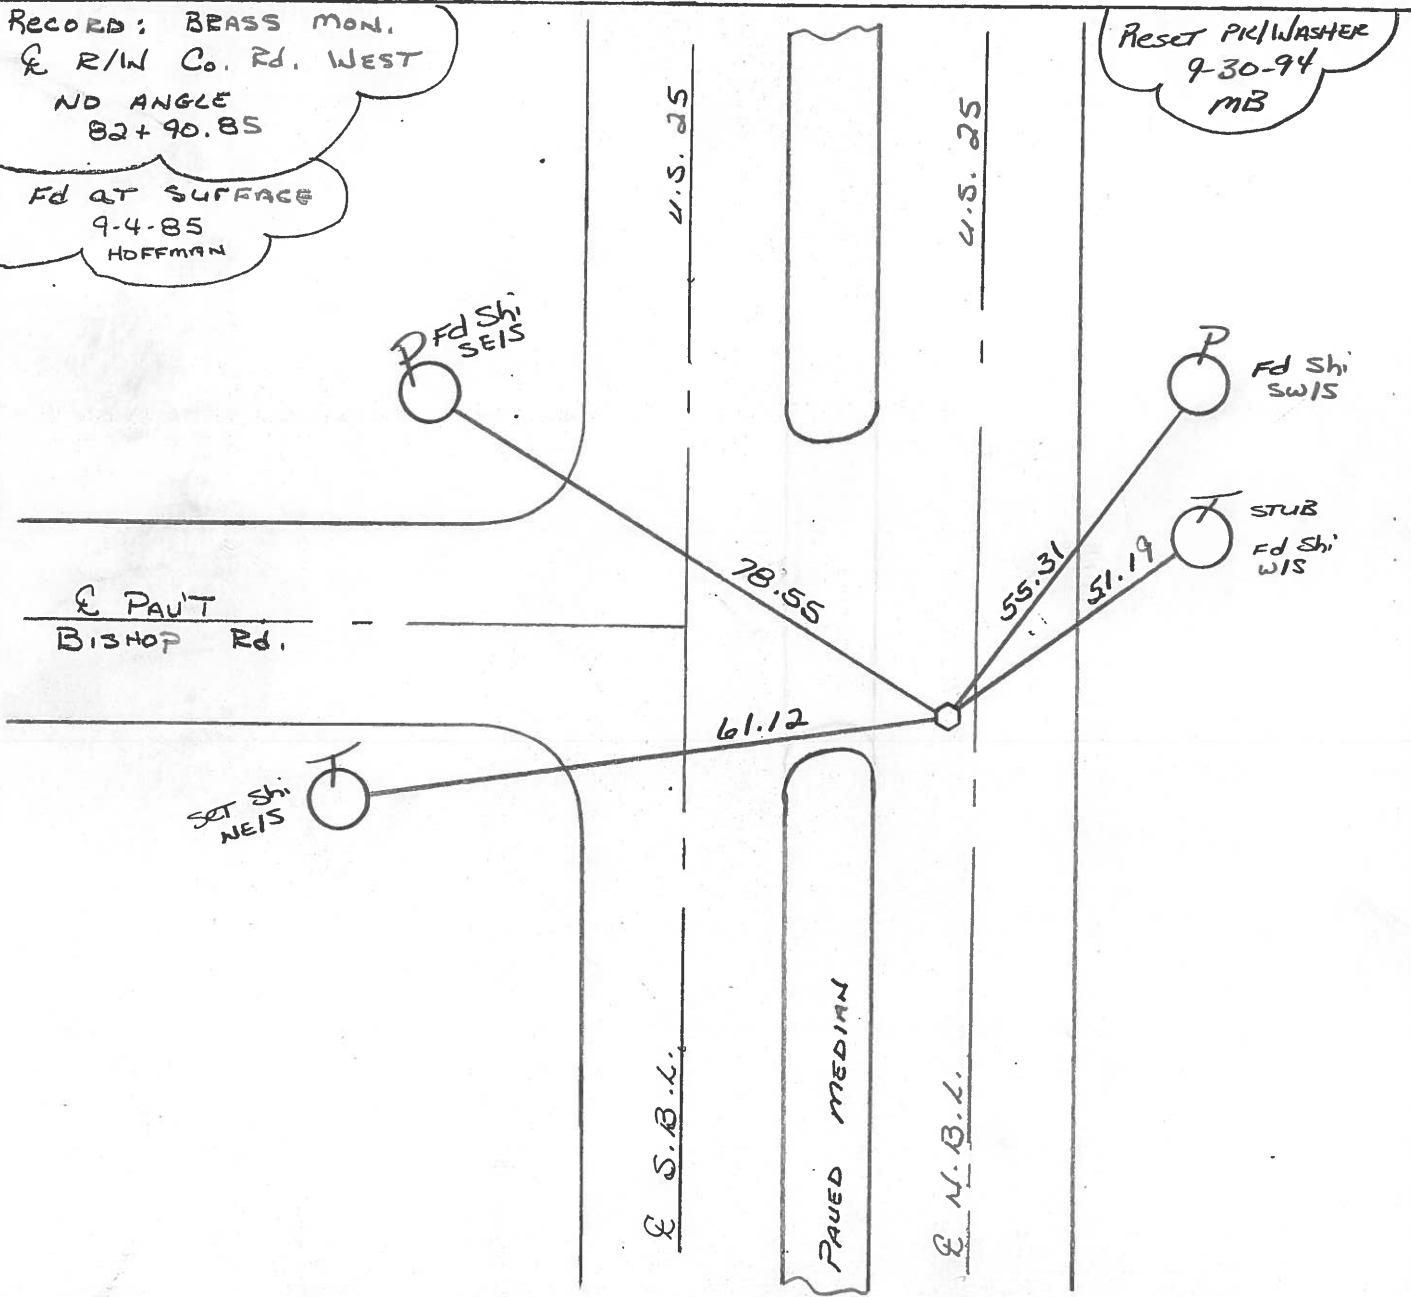 RECORD: BRASS MON.
℄ R/W Co. Rd. WEST
NO ANGLE
82+90.85
Fd aT SURFACE
9-4-85
HOFFMAN
Reset PK/WASHER
9-30-94
MB
U.S. 25
U.S. 25
P
Fd Shi
SE/S
P
Fd Shi
SW/S
T
STUB
Fd Shi
W/S
78.55
55.31
51.19
℄ PAV'T
BISHOP Rd.
61.12
T
SET Shi
NE/S
℄ S.B.L.
PAVED MEDIAN
℄ N.B.L.